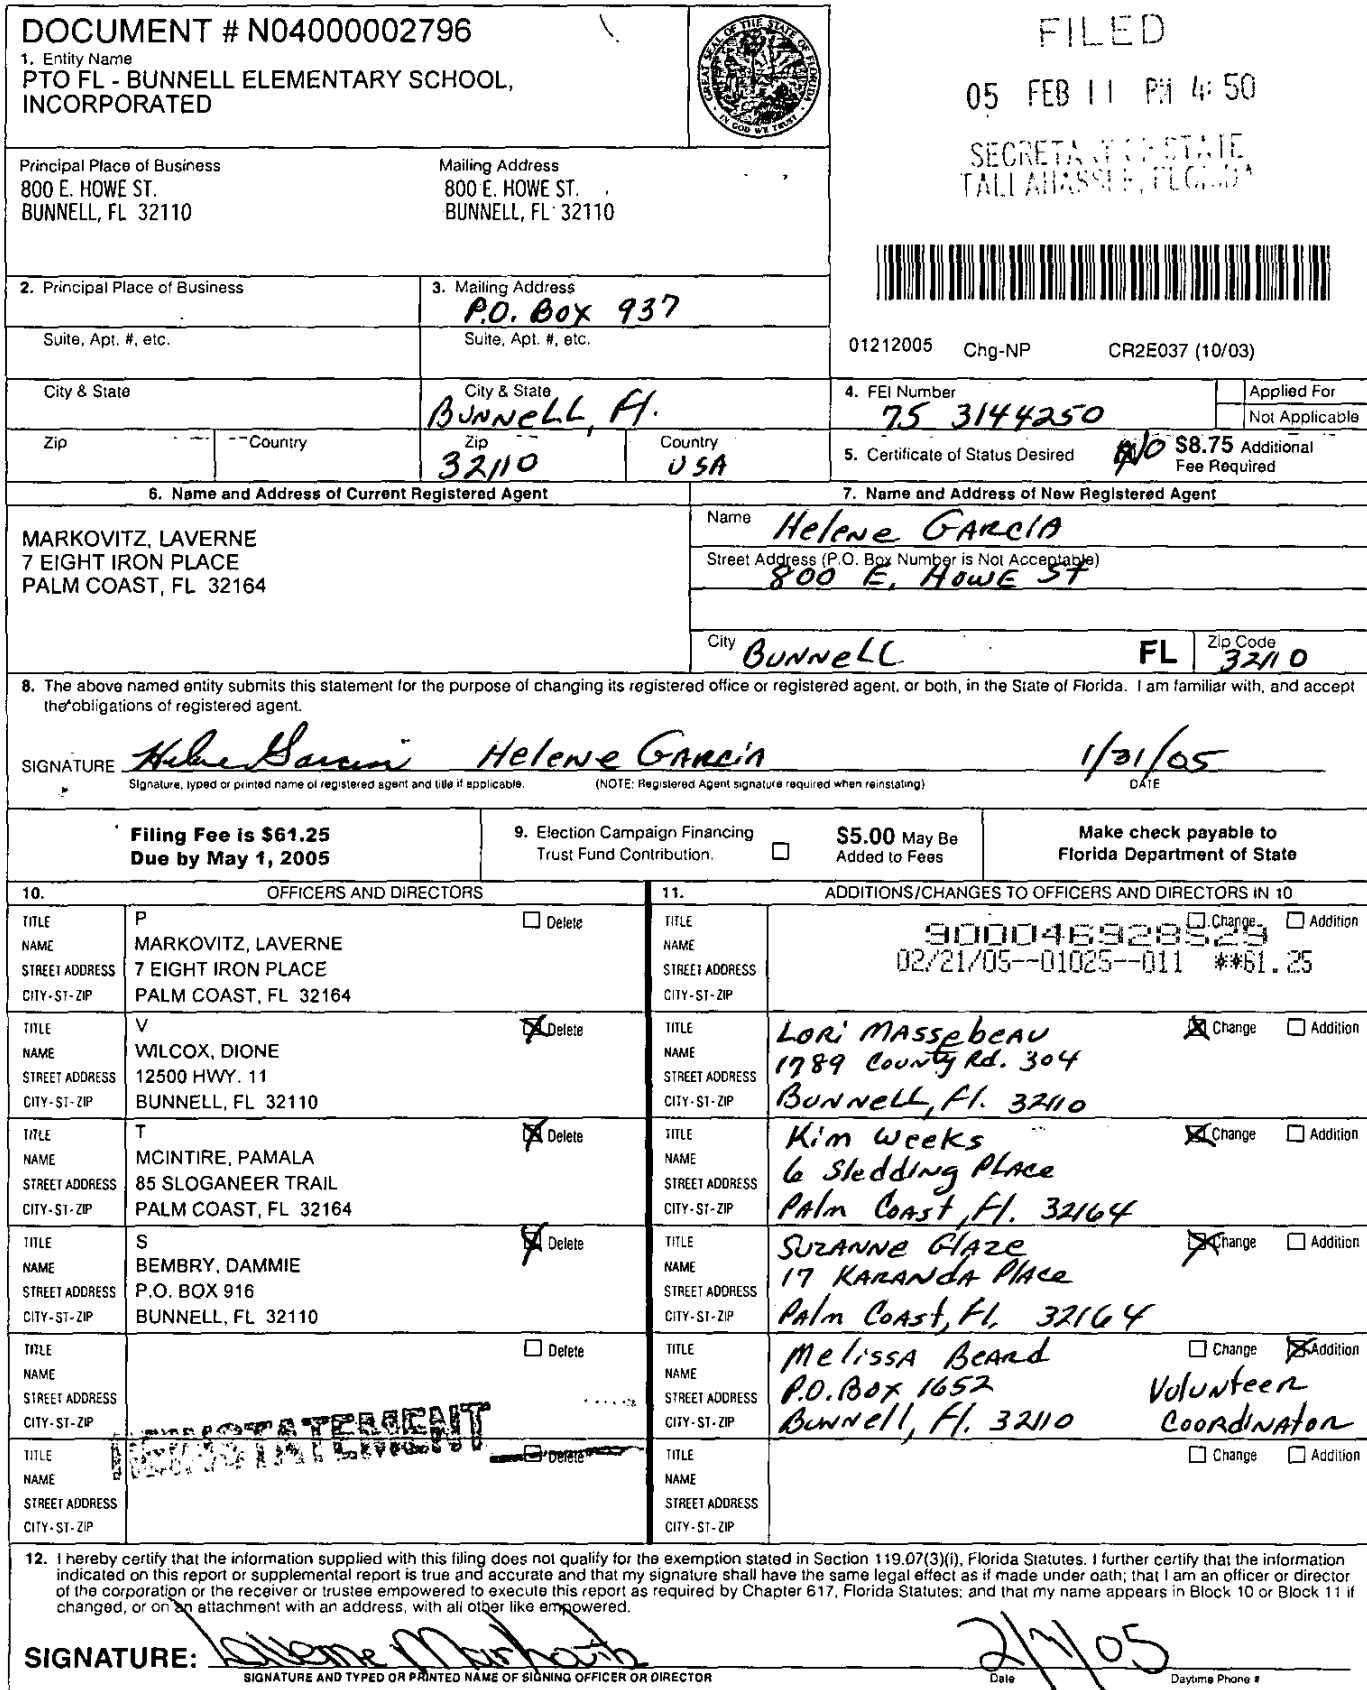 DOCUMENT # N04000002796
1. Entity Name
PTO FL - BUNNELL ELEMENTARY SCHOOL,
INCORPORATED
GREAT SEAL OF THE STATE OF FLORIDA
IN GOD WE TRUST
FILED
05 FEB 11 PM 4:50
SECRETARY OF STATE
TALLAHASSEE, FLORIDA
Principal Place of Business
800 E. HOWE ST.
BUNNELL, FL 32110
Mailing Address
800 E. HOWE ST.
BUNNELL, FL 32110
2. Principal Place of Business
3. Mailing Address
P.O. Box 937
Suite, Apt. #, etc.
Suite, Apt. #, etc.
01212005 Chg-NP CR2E037 (10/03)
City & State
City & State
BUNNELL, Fl.
4. FEI Number
75 3144250
Applied For
Not Applicable
Zip
Country
Zip
32110
Country
USA
5. Certificate of Status Desired
NO
$8.75 Additional
Fee Required
6. Name and Address of Current Registered Agent
MARKOVITZ, LAVERNE
7 EIGHT IRON PLACE
PALM COAST, FL 32164
7. Name and Address of New Registered Agent
Name
Helene GARCIA
Street Address (P.O. Box Number is Not Acceptable)
800 E. HOWE ST
City
BUNNELL
FL
Zip Code
32110
8. The above named entity submits this statement for the purpose of changing its registered office or registered agent, or both, in the State of Florida. I am familiar with, and accept
the obligations of registered agent.
SIGNATURE Helene Garcia Helene GARCIA 1/31/05
Signature, typed or printed name of registered agent and title if applicable. (NOTE: Registered Agent signature required when reinstating) DATE
Filing Fee is $61.25
Due by May 1, 2005
9. Election Campaign Financing
Trust Fund Contribution.
$5.00 May Be
Added to Fees
Make check payable to
Florida Department of State
10. OFFICERS AND DIRECTORS
TITLE P Delete
NAME MARKOVITZ, LAVERNE
STREET ADDRESS 7 EIGHT IRON PLACE
CITY-ST-ZIP PALM COAST, FL 32164
TITLE V Delete
NAME WILCOX, DIONE
STREET ADDRESS 12500 HWY. 11
CITY-ST-ZIP BUNNELL, FL 32110
TITLE T Delete
NAME MCINTIRE, PAMALA
STREET ADDRESS 85 SLOGANEER TRAIL
CITY-ST-ZIP PALM COAST, FL 32164
TITLE S Delete
NAME BEMBRY, DAMMIE
STREET ADDRESS P.O. BOX 916
CITY-ST-ZIP BUNNELL, FL 32110
TITLE Delete
NAME
STREET ADDRESS
CITY-ST-ZIP
REINSTATEMENT
TITLE Delete
NAME
STREET ADDRESS
CITY-ST-ZIP
11. ADDITIONS/CHANGES TO OFFICERS AND DIRECTORS IN 10
TITLE Change Addition
900046928529
NAME
STREET ADDRESS 02/21/05--01025--011 **61.25
CITY-ST-ZIP
TITLE LORI MASSEBEAU Change Addition
NAME
STREET ADDRESS 1789 County Rd. 304
CITY-ST-ZIP BUNNELL, Fl. 32110
TITLE Kim Weeks Change Addition
NAME
STREET ADDRESS 6 Sledding PLACE
CITY-ST-ZIP PAlm COAST, Fl. 32164
TITLE SUZANNE GlAZE Change Addition
NAME
STREET ADDRESS 17 KARANdA PlAce
CITY-ST-ZIP PAlm COAST, Fl. 32164
TITLE MelissA BeARd Change Addition
NAME
STREET ADDRESS P.O. Box 1652 Volunteer
CITY-ST-ZIP BUNNell, Fl. 32110 COORdiNAtoR
TITLE Change Addition
NAME
STREET ADDRESS
CITY-ST-ZIP
12. I hereby certify that the information supplied with this filing does not qualify for the exemption stated in Section 119.07(3)(i), Florida Statutes. I further certify that the information
indicated on this report or supplemental report is true and accurate and that my signature shall have the same legal effect as if made under oath; that I am an officer or director
of the corporation or the receiver or trustee empowered to execute this report as required by Chapter 617, Florida Statutes; and that my name appears in Block 10 or Block 11 if
changed, or on an attachment with an address, with all other like empowered.
SIGNATURE: LaVerne Markovitz
SIGNATURE AND TYPED OR PRINTED NAME OF SIGNING OFFICER OR DIRECTOR Date Daytime Phone #